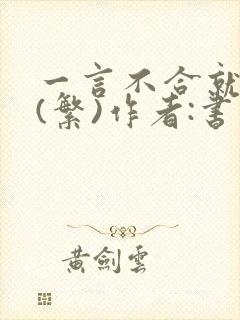 一言不合就
(繁)作者:書
黃劍雲